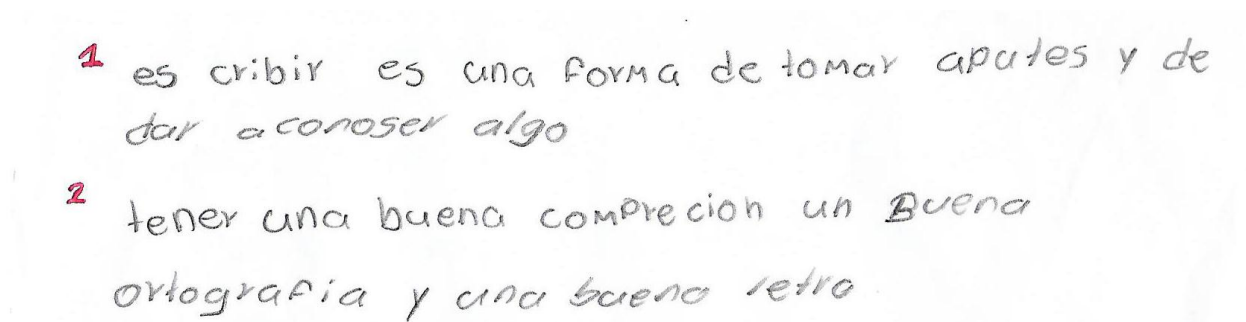 1 es cribir es una forma de tomar aputes y de
dar a conoser algo
2 tener una buena comprecion un Buena
ortografia y una buena letra